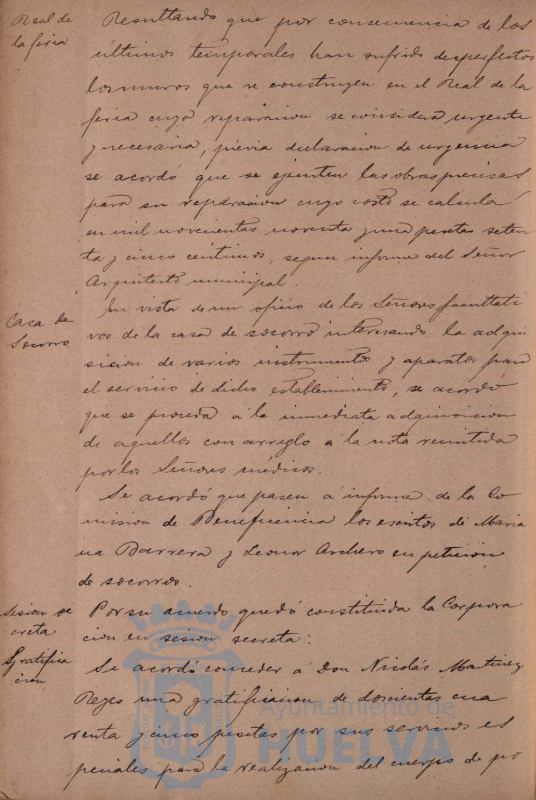 Real de
la feria
Resultando que por consecuencia de los
últimos temporales han sufrido desperfectos
los muros que se construyen en el Real de la
feria cuya reparacion se considera urgente
y necesaria, previa declaracion de urgencia
se acordó que se ejecuten las obras precisas
para su reparacion cuyo costo se calcula
en mil novecientas noventa y una pesetas seten
ta y cinco centimos, segun informe del Señor
Arquitecto municipal.
Casa de
Socorro
En vista de un oficio de los Señores facultati
vos de la casa de socorro interesando la adqui
sicion de varios instrumentos y aparatos para
el servicio de dicho establecimiento, se acordó
que se proceda á la inmediata adquisicion
de aquellos con arreglo á la nota remitida
por los Señores médicos.
Se acordó que pasen á informe de la Co
mision de Beneficencia los escritos de Maria
na Barrera y Leonor Archero en peticion
de socorros.
Sesion se
creta
Por su acuerdo quedó constituida la Corpora
cion en sesion secreta:
Gratifica
cion
Se acordó conceder á Don Nicolás Martinez
Reyes una gratificacion de doscientas cua
renta y cinco pesetas por sus servicios es
peciales para la realizacion del cuerpo de po
Ayuntamiento de
HUELVA